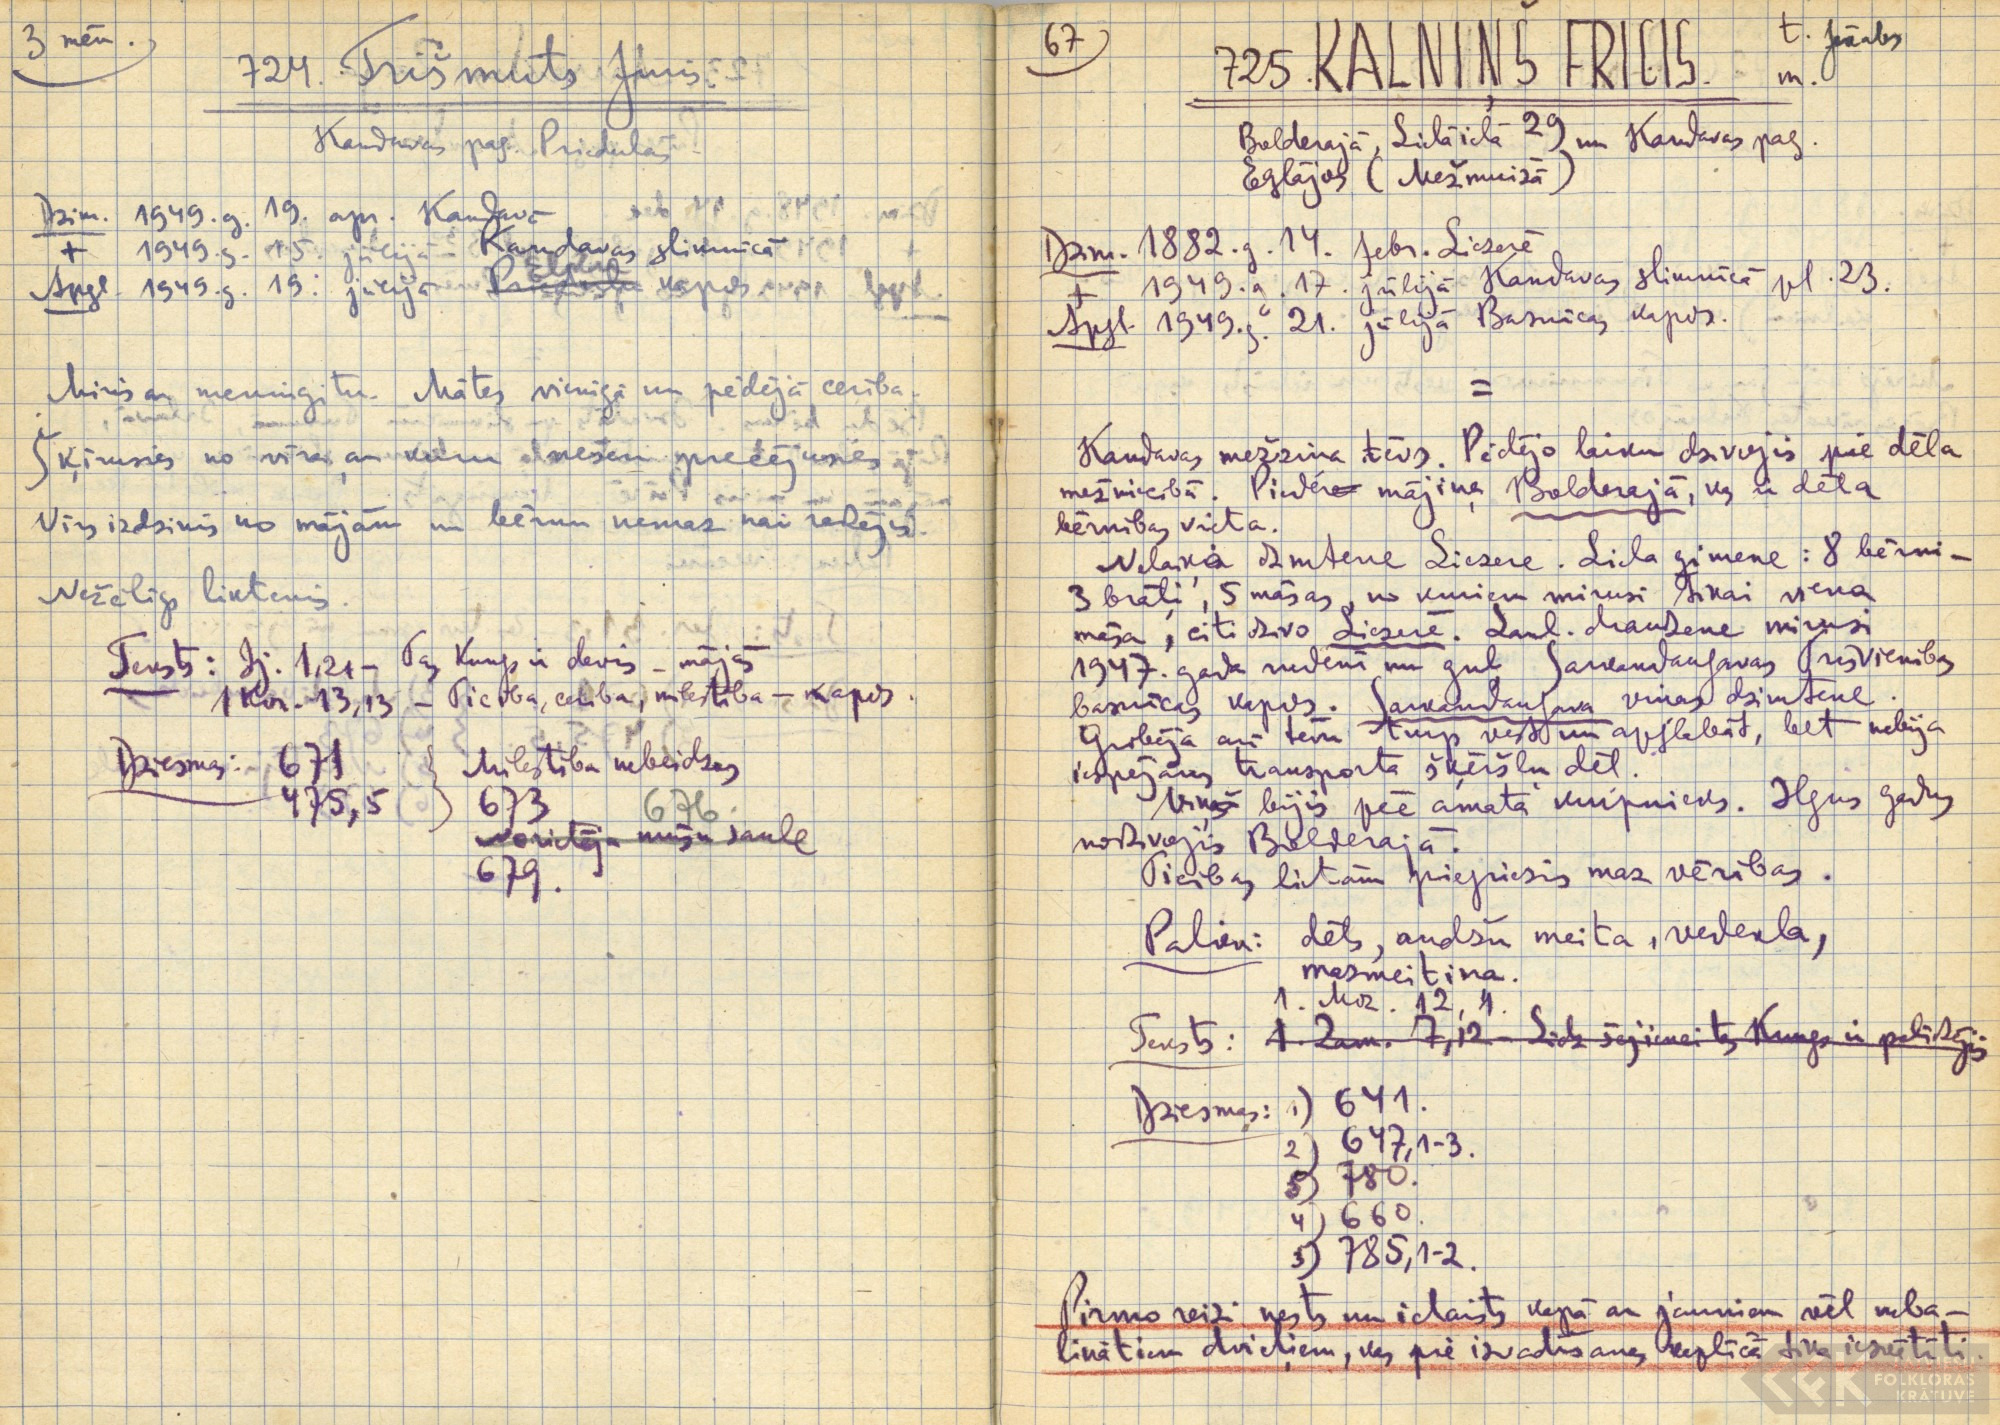 3 mēn.
724. Trišmuts Juris.
Kandavas pag. Priedulās
Dzim. 1949. g. 19. apr. Kandavā
+ 1949. g. 15. jūlijā Kandavas slimnīcā
Apgl. 1949. g. 19. jūlijā kapos
Miris ar meningitu. Mātes vienīgā un pēdējā cerība.
Šķīrusies no vīra, ar kuru nesen precējusies
Vīrs izdzinis no mājām un bērnu nemaz nai redzējis.
Nežēlīgs liktenis.
Teksts: Īj. 1,21 – Tas Kungs ir devis – mājās
1 Kor. 13,13 – Ticība, cerība, mīlestība – kapos.
Dziesmas: 671 Mīlestība nebeidzas
475,5 673 676.
Norietēja mūsu saule
679.
67
725. KALNIŅŠ FRICIS.
t. Jēkabs
m.
Bolderajā, Lielā ielā 29 un Kandavas pag.
Eglājos (Mežmuižā)
Dzim. 1882. g. 14. febr. Liezerē
+ 1949. g. 17. jūlijā Kandavas slimnīcā pl. 23.
Apgl. 1949. g. 21. jūlijā Baznīcas kapos.
=
Kandavas mežziņa tēvs. Pēdējo laiku dzīvojis pie dēla
mežniecībā. Pieder mājiņa Bolderajā, kas ir dēla
bērnības vieta.
Nelaiķa dzimtene Liezere. Liela ģimene: 8 bērni –
3 brāļi, 5 māsas, no kuriem mirusi tikai viena
māsa, citi dzīvo Liezerē. Laul. draudzene mirusi
1947. gada rudenī un guļ Sarkandaugavas Trīsvienības
baznīcas kapos. Sarkandaugava viņas dzimtene.
Gribēja arī tēvu turp vest un apglabāt, bet nebija
iespējams transporta šķēršļu dēļ.
Viņš bijis pēc amata kuģinieks. Ilgus gadus
nodzīvojis Bolderajā.
Ticības lietām piegriezis maz vērības.
Paliek: dēls, audžu meita, vedekla,
mazmeitiņa.
1. Moz. 12,1.
Teksts: 1. Zam. 7,12 – Līdz šejienei tas Kungs ir palīdzējis
Dziesmas: 1) 641.
2) 647,1-3.
3) 780.
4) 660.
5) 785,1-2.
Pirmo reizi nests un ielaists kapā ar jauniem vēl neba-
linātiem dvieļiem, kas pie izvadīšanas kaplīcā tika iesvētīti.
FOLKLORAS
KRĀTUVE